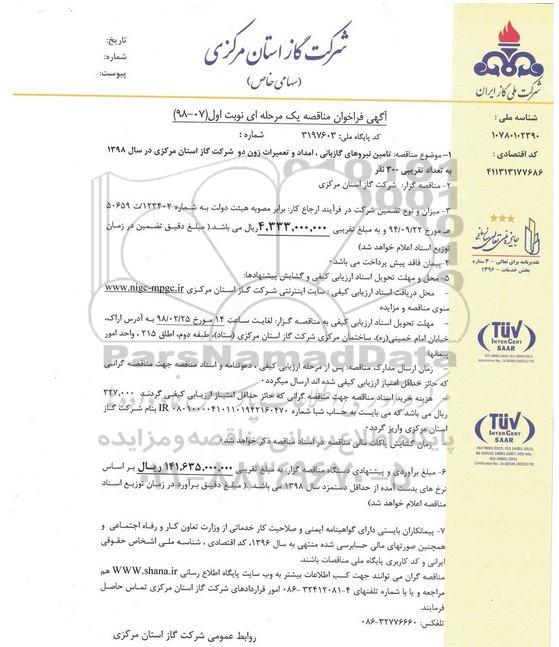 شرکت گاز استان مرکزی
(سهامی خاص)
تاریخ:
شماره:
پیوست:
شرکت ملی گاز ایران
شناسه ملی :
۱۰۷۸۰۱۰۲۳۹۰
کد اقتصادی :
۴۱۱۳۱۳۱۷۷۶۸۶
جایزه ملی تعالی سازمانی
تقدیرنامه برای تعالی - ۳ ستاره
بخش خدمات - ۱۳۹۶
TÜV
INTERCERT
SAAR
TÜV
INTERCERT
SAAR
آگهی فراخوان مناقصه یک مرحله ای نوبت اول(۰۷-۹۸)
کد پایگاه ملی: ۳۱۹۷۶۰۳ شماره :
۱-موضوع مناقصه: تامین نیروهای گازبانی ، امداد و تعمیرات زون دو شرکت گاز استان مرکزی در سال ۱۳۹۸
به تعداد تقریبی ۳۰۰ نفر
۲- مناقصه گزار: شرکت گاز استان مرکزی
۳- میزان و نوع تضمین شرکت در فرآیند ارجاع کار: برابر مصوبه هیئت دولت به شماره ۱۲۳۴۰۲/ت ۵۰۶۵۹
هـ مورخ ۹۴/۰۹/۲۲ و به مبلغ تقریبی ۴,۳۳۳,۰۰۰,۰۰۰ریال می باشد.( مبلغ دقیق تضمین در زمان
توزیع اسناد اعلام خواهد شد)
۴-پیمان فاقد پیش پرداخت می باشد.
۵-محل و مهلت تحویل اسناد ارزیابی کیفی و گشایش پیشنهادها:
- محل دریافت اسناد ارزیابی کیفی : سایت اینترنتی شرکت گاز استان مرکزی www.nigc-mpgc.ir
منوی مناقصه و مزایده
- مهلت تحویل اسناد ارزیابی کیفی به مناقصه گزار: لغایت ساعت ۱۴ مورخ ۹۸/۰۲/۲۵ به آدرس اراک،
خیابان امام خمینی(ره)، ساختمان مرکزی شرکت گاز استان مرکزی (ستاد)، طبقه دوم، اطاق ۲۱۵ ، واحد امور
پیمانها
- زمان ارسال مدارک مناقصه: پس از مرحله ارزیابی کیفی ، دعوتنامه و اسناد مناقصه جهت مناقصه گرانی
که حائز حداقل امتیاز ارزیابی کیفی شده اند ارسال میگردد.
- هزینه خرید اسناد مناقصه جهت مناقصه گرانی که حائز حداقل امتیاز ارزیابی کیفی گردند ۳۲۷,۰۰۰
ریال می باشد که می بایست به حساب شبا شماره IR ۰۸۰۱۰۰۰۰۴۱۰۱۱۰۱۹۴۲۱۶۰۴۷۰ بنام شرکت گاز
استان مرکزی واریز گردد.
- زمان گشایش پاکات مالی مناقصه در اسناد مناقصه ذکر خواهد شد.
۶- مبلغ برآوردی و پیشنهادی دستگاه مناقصه گزار: به مبلغ تقریبی ۱۴۱,۶۳۵,۰۰۰,۰۰۰ ریال بر اساس
نرخ های بدست آمده از حداقل دستمزد سال ۱۳۹۸ می باشد.( مبلغ دقیق برآورد در زمان توزیع اسناد
مناقصه اعلام خواهد شد)
۷- پیمانکاران بایستی دارای گواهینامه ایمنی و صلاحیت کار خدماتی از وزارت تعاون کار و رفاه اجتماعی و
همچنین صورتهای مالی حسابرسی شده منتهی به سال ۱۳۹۶، کد اقتصادی ، شناسه ملی اشخاص حقوقی
ایرانی و کد کاربری پایگاه ملی مناقصات باشند.
مناقصه گران می توانند جهت کسب اطلاعات بیشتر به وب سایت پایگاه اطلاع رسانی WWW.shana.ir هم
مراجعه و یا با شماره تلفنهای ۴-۳۲۴۱۲۰۸۱ -۰۸۶ امور قراردادهای شرکت گاز استان مرکزی تماس حاصل
فرمایند.
تلفکس: ۳۲۷۷۶۶۶۰-۰۸۶
روابط عمومی شرکت گاز استان مرکزی
ParsNamadData